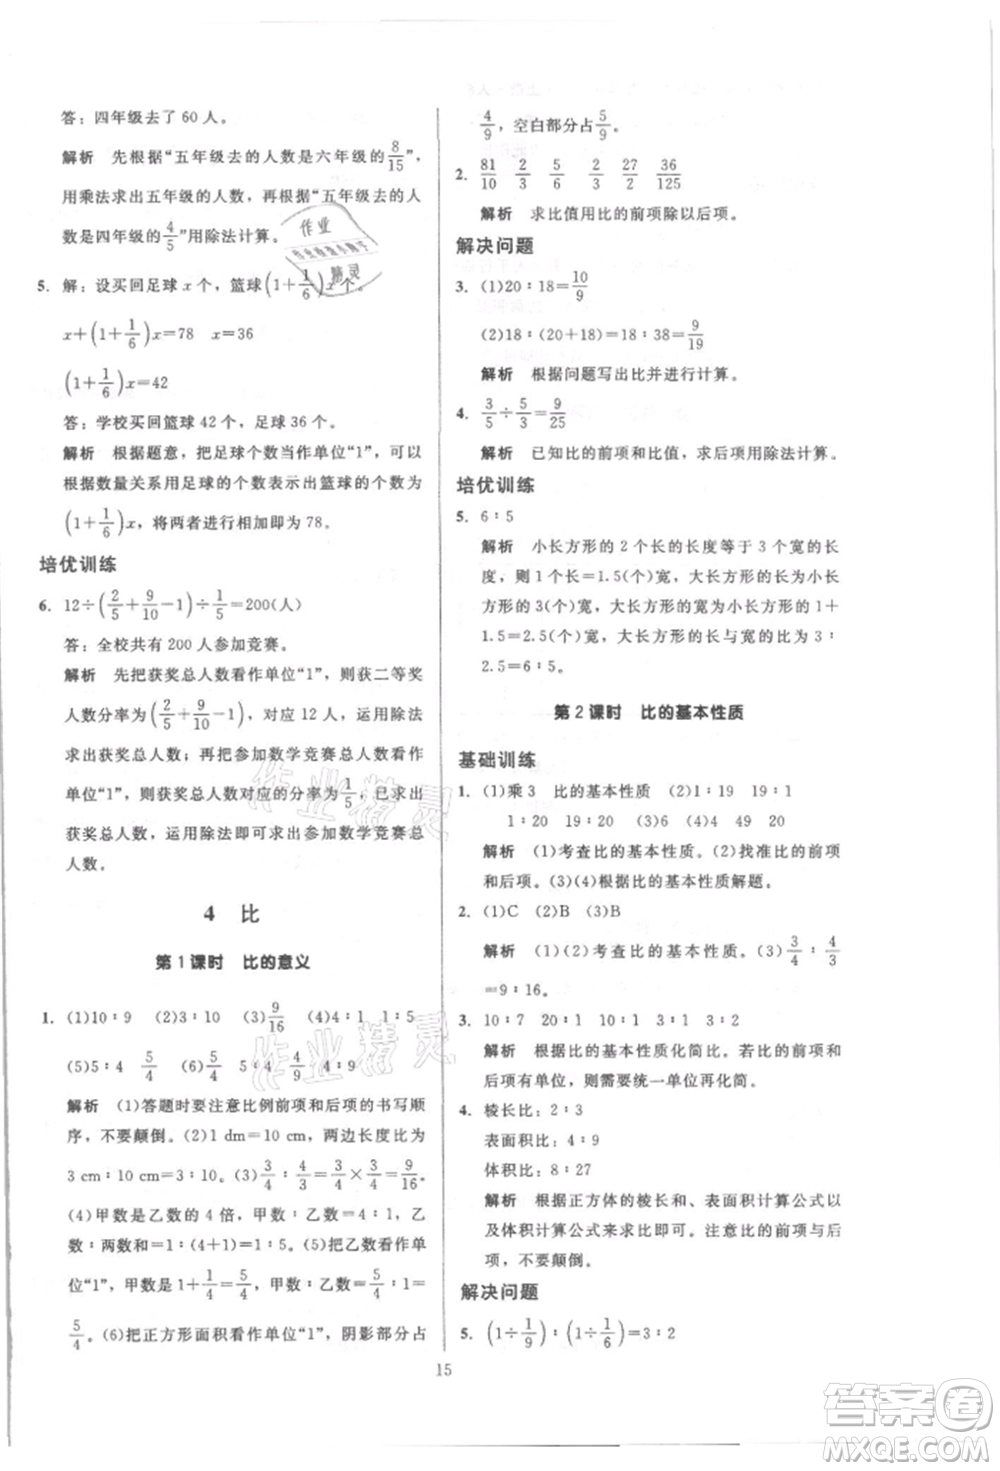 答：四年级去了 60 人。
解析 先根据“五年级去的人数是六年级的8/15”，
用乘法求出五年级的人数，再根据“五年级去的人
数是四年级的4/5”用除法计算。
5. 解：设买回足球 x 个，篮球(1+1/6)x 个。
x+(1+1/6)x=78 x=36
(1+1/6)x=42
答：学校买回篮球 42 个，足球 36 个。
解析 根据题意，把足球个数当作单位“1”，可以
根据数量关系用足球的个数表示出篮球的个数为
(1+1/6)x，将两者进行相加即为 78。
培优训练
6. 12÷(2/5+9/10-1)÷1/5=200(人)
答：全校共有 200 人参加竞赛。
解析 先把获奖总人数看作单位“1”，则获二等奖
人数分率为(2/5+9/10-1)，对应 12 人，运用除法
求出获奖总人数；再把参加数学竞赛总人数看作
单位“1”，则获奖总人数对应的分率为1/5，依据求出
获奖总人数，运用除法即可求出参加数学竞赛总
人数。
4 比
第 1 课时 比的意义
1. (1)10∶9 (2)3∶10 (3)9/16 (4)4∶1 1∶5
(5)5∶4 5/4 (6)5/4 4/9 5/4 4∶9
解析 (1)答题时要注意比例前项和后项的书写顺
序，不要颠倒。(2)1 dm=10 cm，两边长度比为
3 cm∶10 cm=3∶10。(3)3/4∶4/3=3/4×3/4=9/16。
(4)甲数是乙数的 4 倍，甲数∶乙数=4∶1，乙
数∶两数和=1∶(4+1)=1∶5。(5)把乙数看作单
位“1”，甲数是1+1/4=5/4，甲数∶乙数=5/4∶1=
5/4。(6)把正方形面积看作单位“1”，阴影部分占
4/9，空白部分占5/9。
2. 81/10 2/3 5/6 27/2 36/125
解析 求比值用比的前项除以后项。
解决问题
3. (1)20∶18=10/9
(2)18∶(20+18)=18∶38=9/19
解析 根据问题写出比并进行计算。
4. 3/5÷5/3=9/25
解析 已知比的前项和比值，求后项用除法计算。
培优训练
5. 6∶5
解析 小长方形的 2 个长的长度等于 3 个宽的长
度，则 1 个长=1.5(个)宽，大长方形的长是小长
方形的 3(个)宽，大长方形的宽是小长方形的 1+
1.5=2.5(个)宽，大长方形的长与宽的比为 3∶
2.5=6∶5。
第 2 课时 比的基本性质
基础训练
1. (1)乘3 比的基本性质 (2)1∶19 19∶1
1∶20 19∶20 (3)6 (4)4 49 20
解析 (1)考查比的基本性质。(2)找准比的前项
和后项。(3)(4)根据比的基本性质解题。
2. (1)C (2)B (3)B
解析 (1)(2)考查比的基本性质。(3)3/4∶4/3
=9∶16。
3. 10∶7 2∶9 5∶2 40∶1
解析 根据比的基本性质化简比。若比的前项和
后项有单位，则应先统一单位再化简。
4. 棱长比：2∶3
表面积比：4∶9
体积比：8∶27
解析 根据正方体的棱长和、表面积计算公式以
及体积计算公式来求比即可。要注意比的前项与后
项，不要颠倒。
解决问题
5. (1÷1/9)∶(1÷1/6)=3∶2
15
作业精灵
作业精灵
答案圈
MXQE.COM